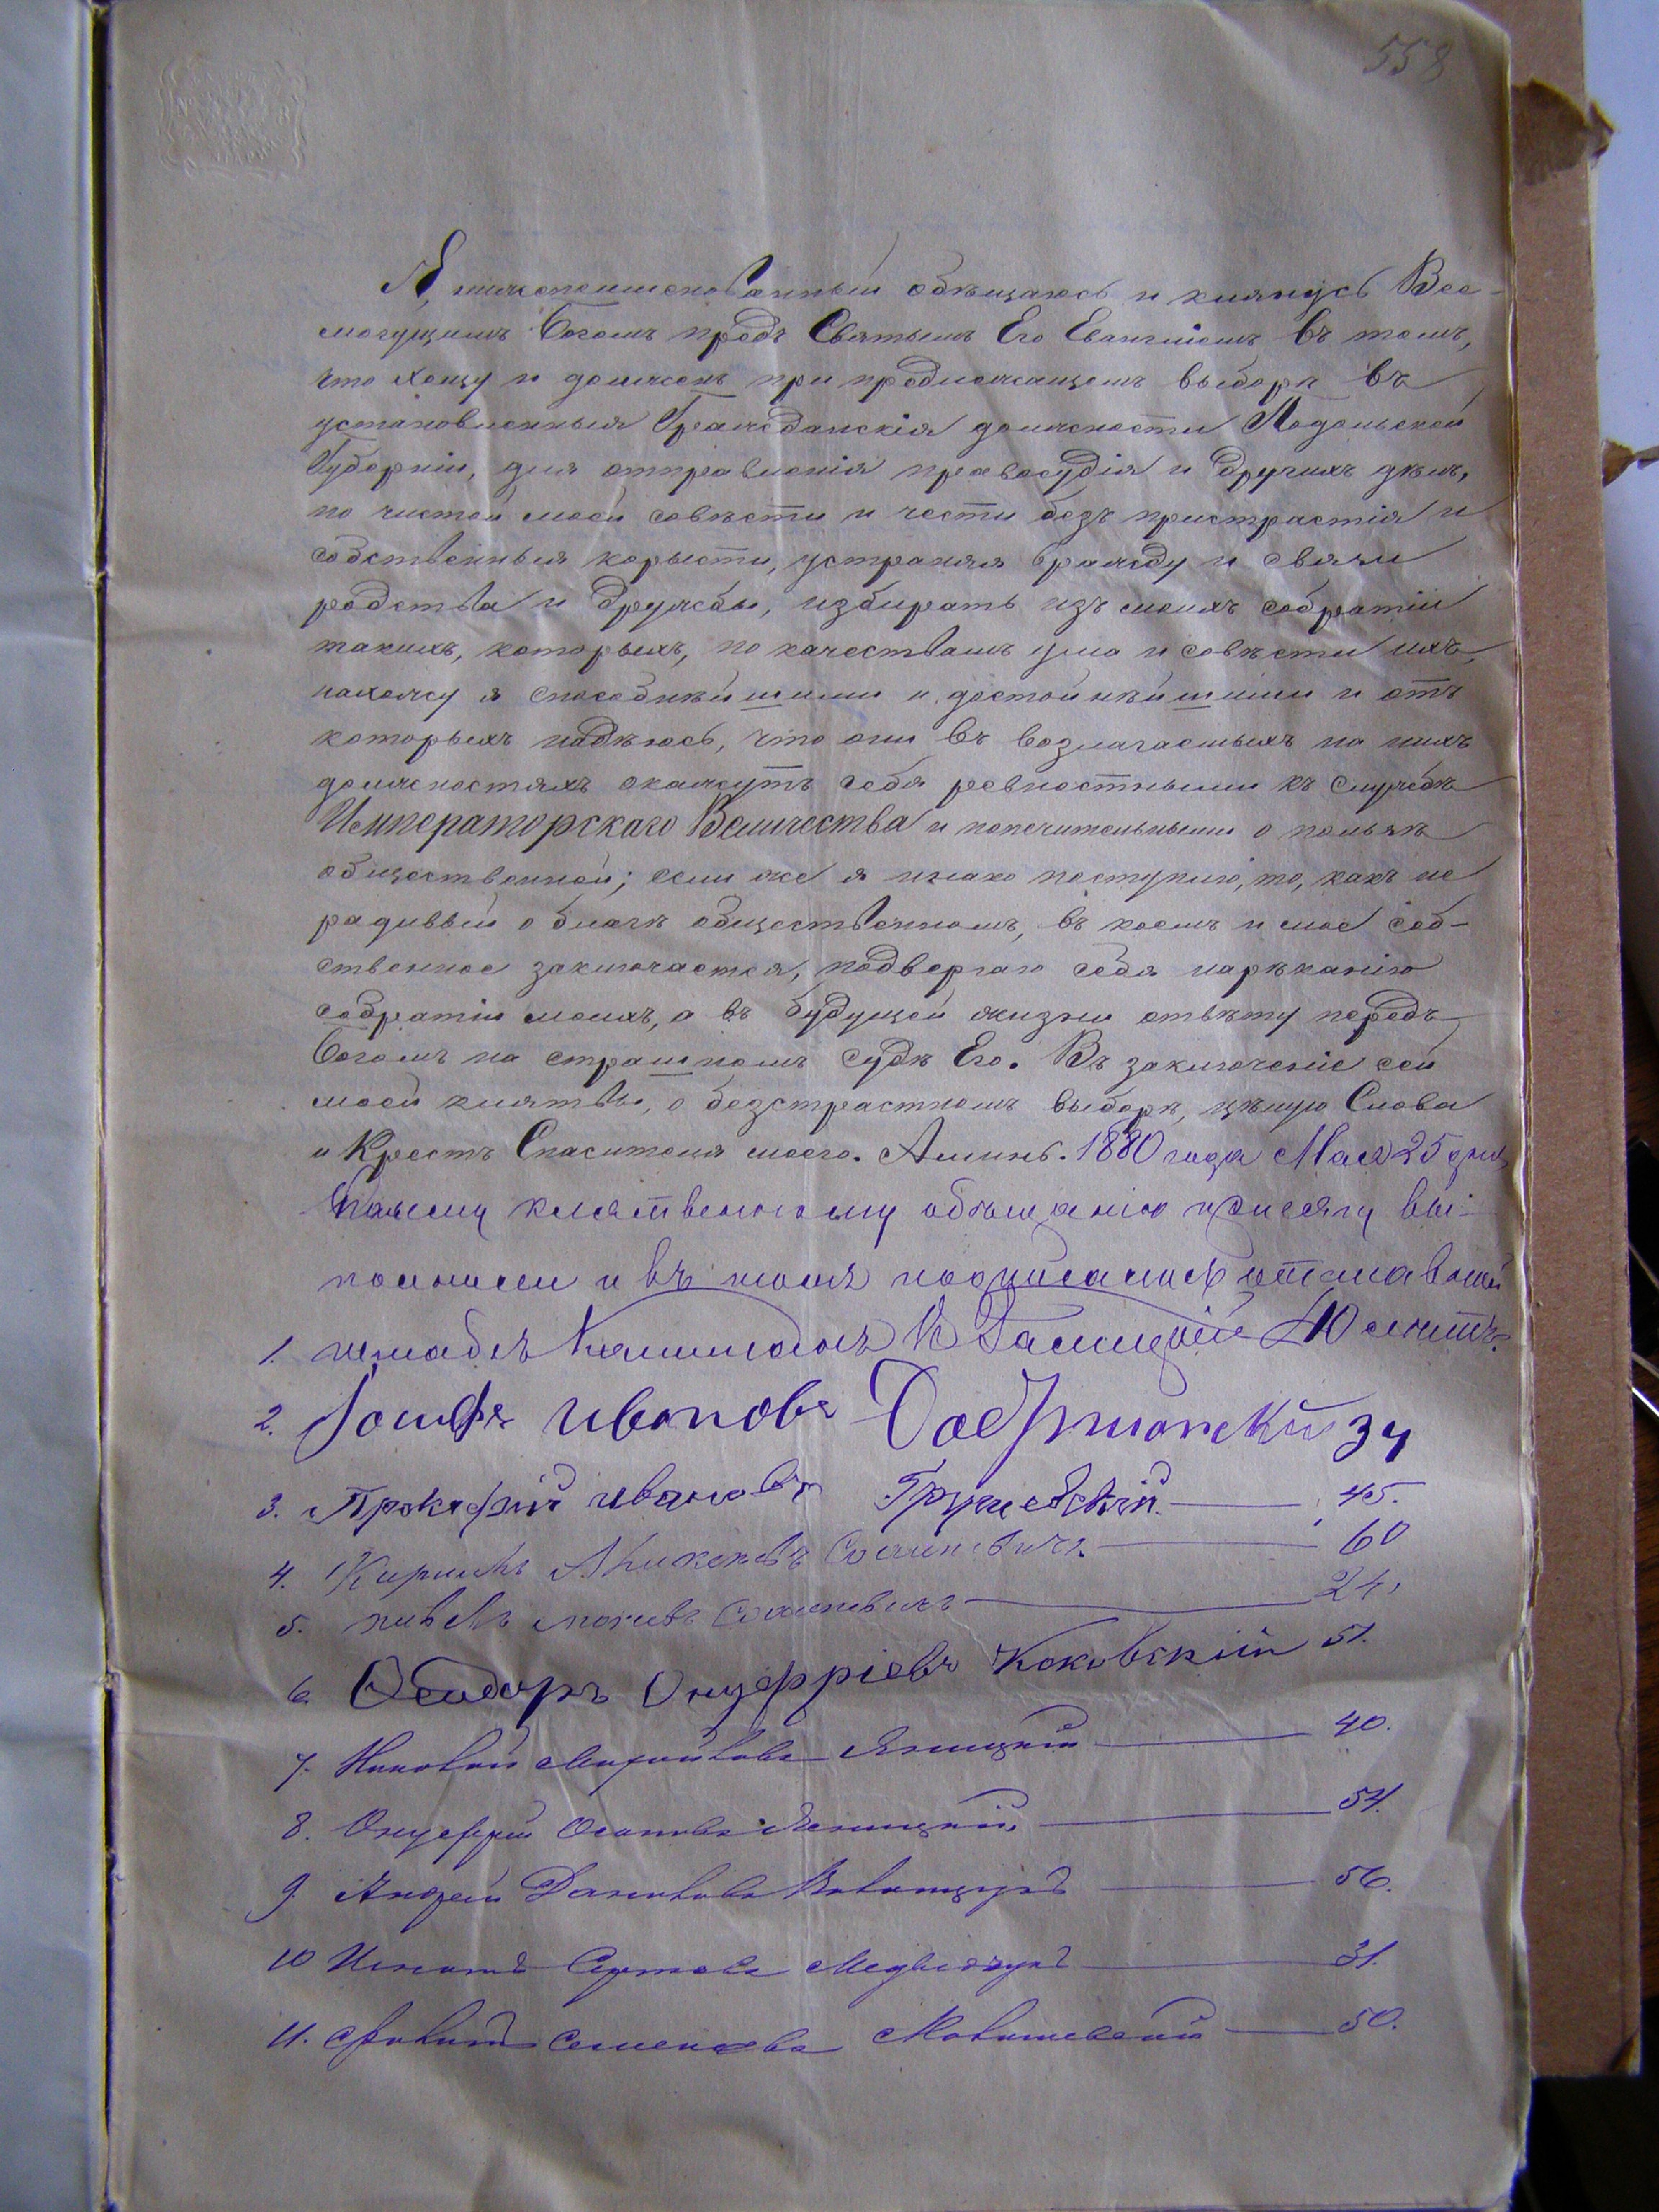 558
Я, нижепоименованный обѣщаюсь и клянусь Все-
могущимъ Богомъ предъ Святымъ Его Евангліемъ въ томъ,
что хощу и долженъ при предлежащемъ выборѣ въ
установленныя Гражданскія должности Подольской
Губерніи, для отправленія правосудія и другихъ дѣлъ,
по чистой моей совѣсти и чести безъ пристрастія и
собственныя корысти, устраняя вражду и связи
родства и дружбы, избирать изъ моихъ собратіи
такихъ, которыхъ, по качествамъ ума и совѣсти ихъ,
нахожу я способнѣйшими и достойнѣйшими и отъ
которыхъ надѣюсь, что они въ возлагаемыхъ на нихъ
должностяхъ окажутъ себя ревностными къ службѣ
Императорскаго Величества и попечительными о пользѣ
общественной; если же я инако поступлю, то, какъ не
радивый о благѣ общественномъ, въ коемъ и мое соб-
ственное заключается, подвергаю себя нареканію
собратіи моихъ, а въ будущей жизни отвѣту передъ
Богомъ на страшномъ судѣ Его. Въ заключеніе сей
моей клятвы, о безстрастномъ выборѣ, цѣлую Слова
и Крестъ Спасителя моего. Аминь. 1880 года Мая 25 дня
клятвенному обѣщанію присягу вы-
полнили и въ томъ подписались
1. штабсъ Капитанъ 40 лѣтъ.
2. Іосифъ Ивановъ 34
3. Прокофій Ивановъ 45.
4. Кирилъ 60
5. 24,
6. Ѳеодоръ Онуфріевъ Коковскій 51.
7. Николай Михайловъ Яницкій 40.
8. Онуфрій Осиповъ Яницкій 54.
9. Андрей Даниловъ 56.
10 Игнатъ Медведчукъ 31.
11. Семеновъ 50.